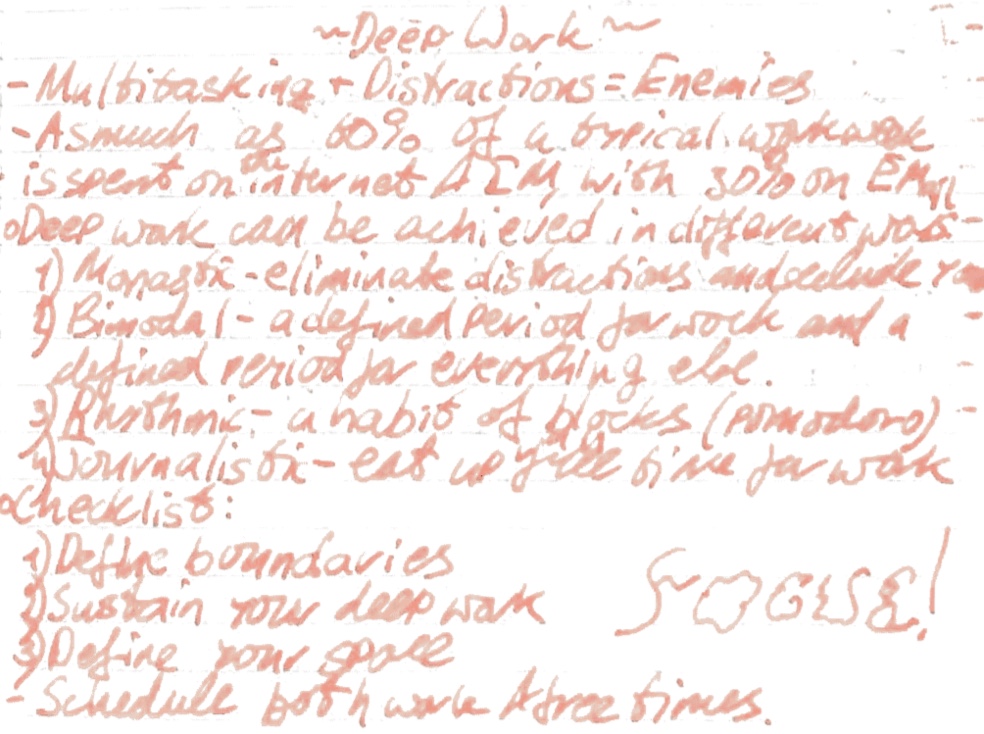 ~Deep Work~
- Multitasking + Distractions = Enemies
- As much as 60% of a typical workweek
is spent on the internet & IM, with 30% on EMail
Deep work can be achieved in different ways
1) Monastic - eliminate distractions and seclude
2) Bimodal - a defined period for work and a
defined period for everything else.
3) Rhythmic - a habit of blocks (pomodoro)
4) Journalistic - eat up free time for work
Checklist:
1) Define boundaries
2) Sustain your deep work
3) Define your space
- Schedule both work & free times.
FOCUS!